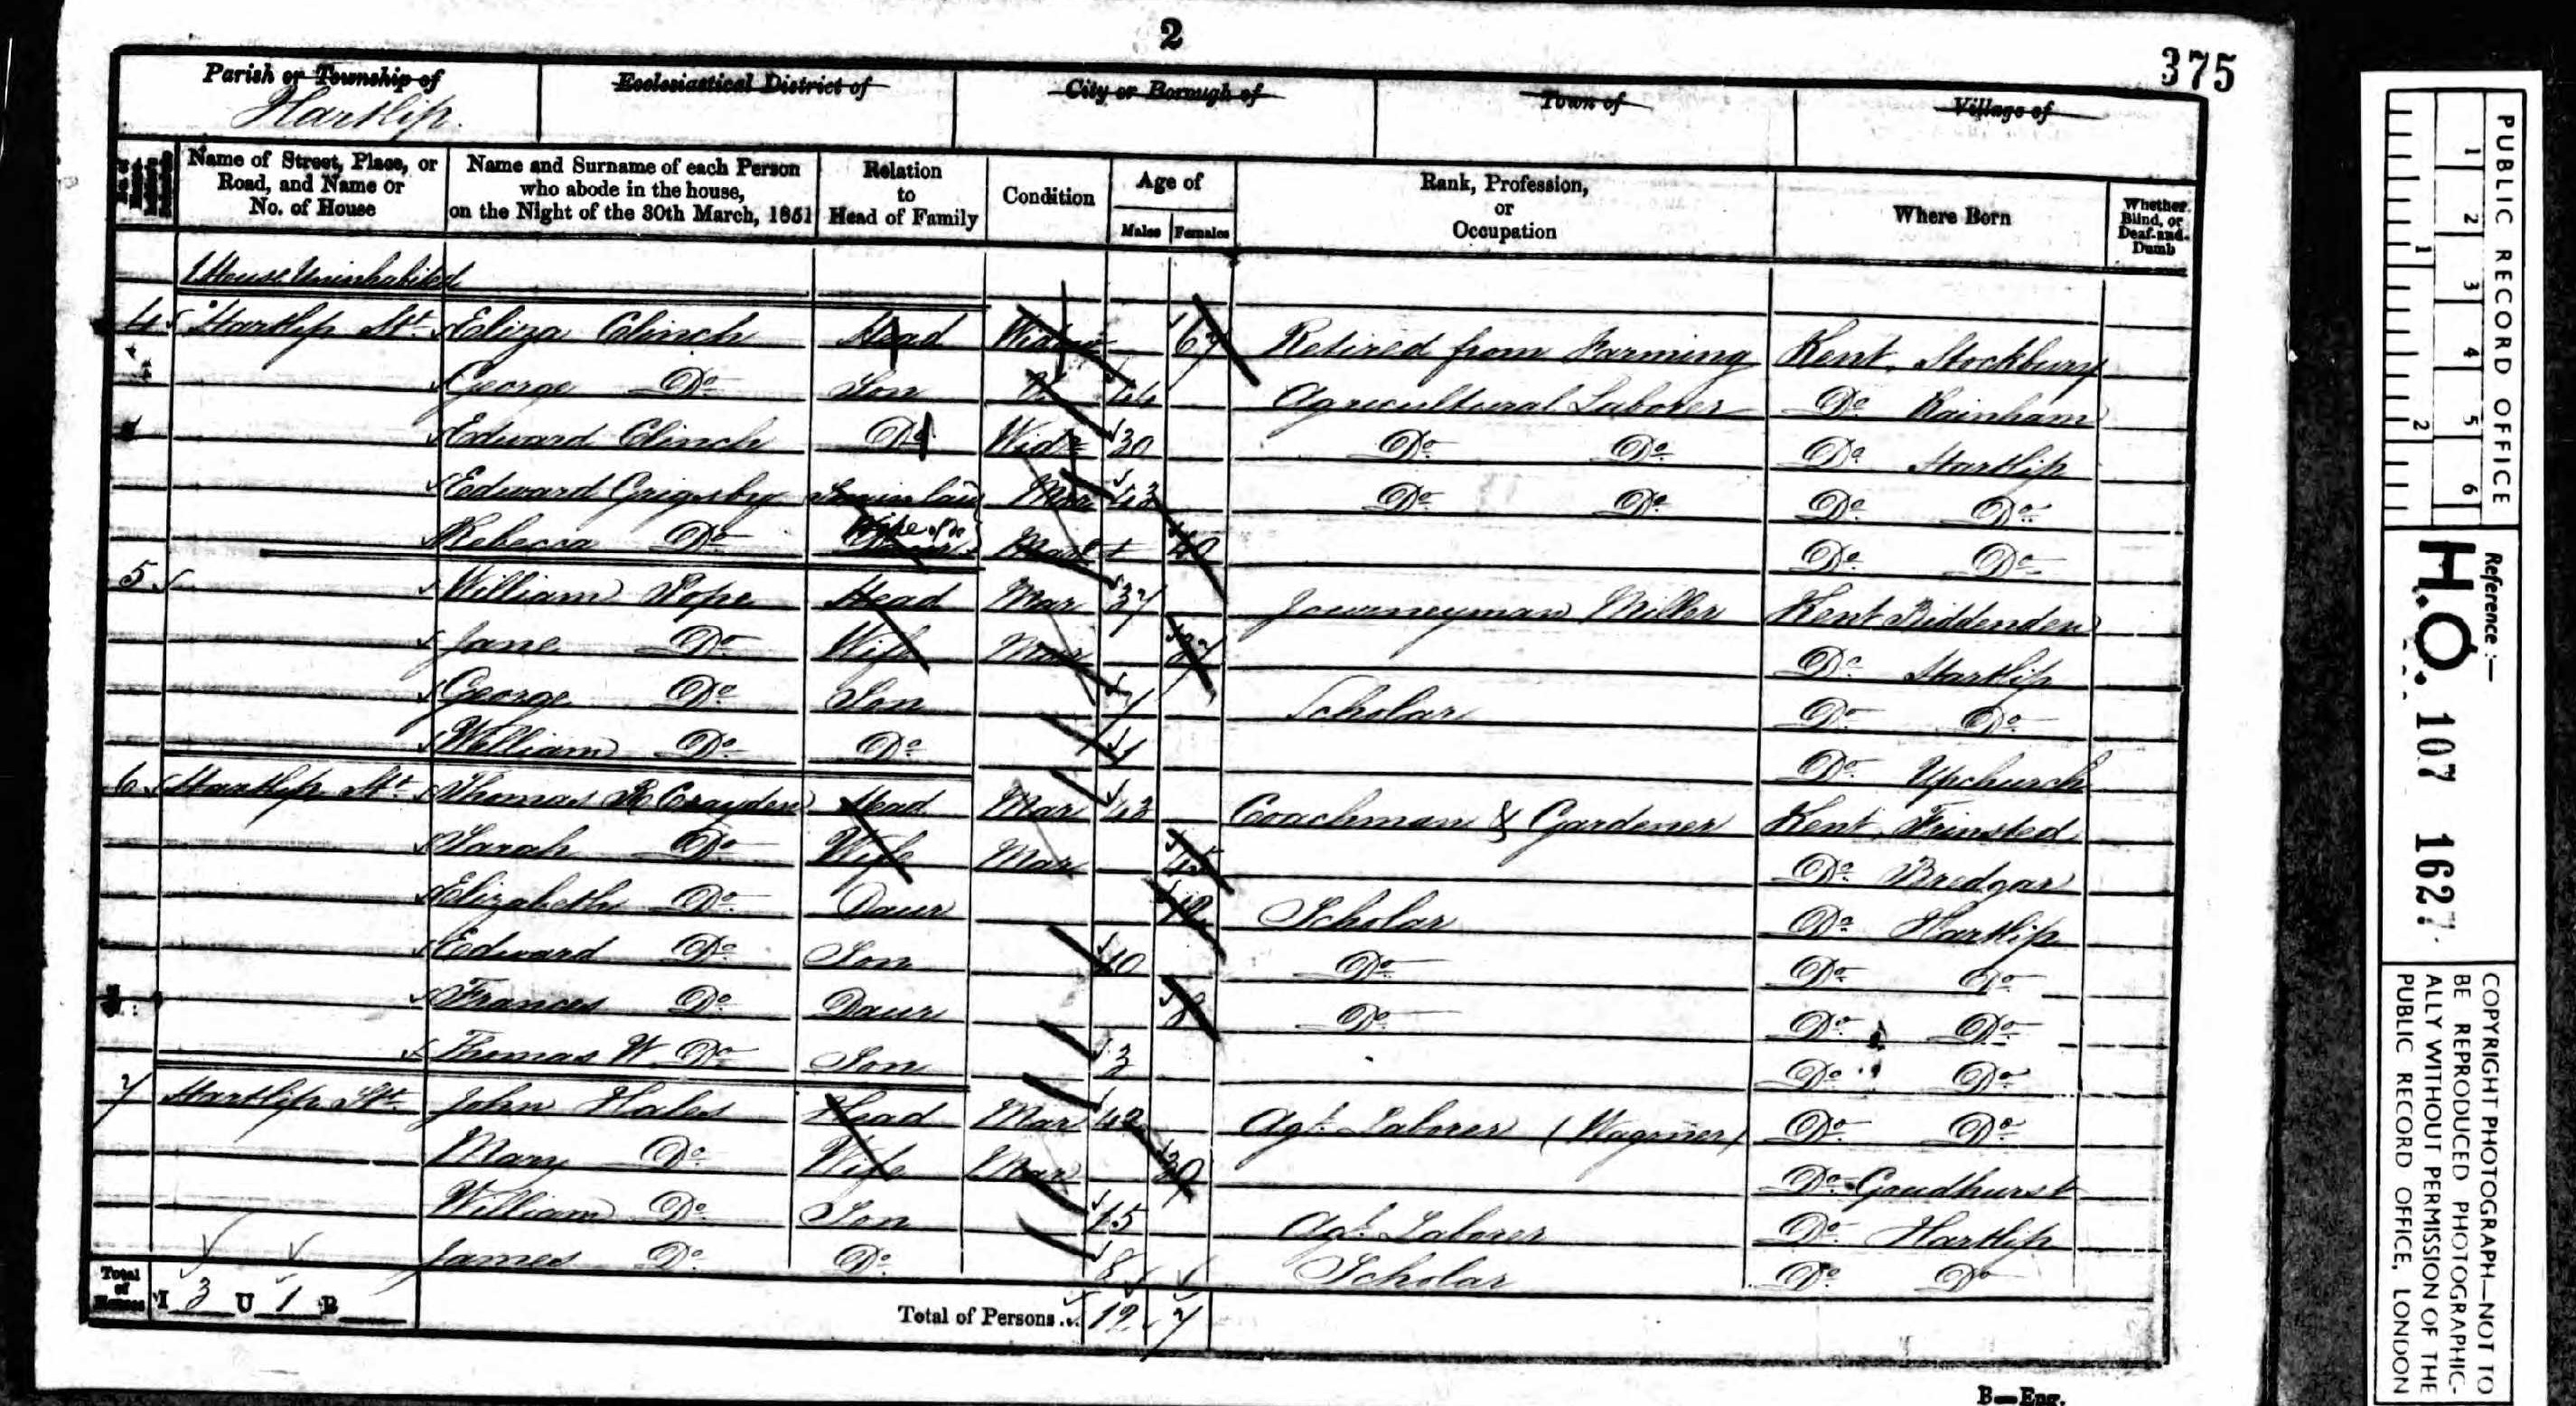 2
375
Parish or Township of
Hartlip.
Ecclesiastical District of
City or Borough of
Town of
Village of
Name of Street, Place, or Road, and Name or No. of House
Name and Surname of each Person who abode in the house, on the Night of the 30th March, 1851
Relation to Head of Family
Condition
Age of
Males Females
Rank, Profession, or Occupation
Where Born
Whether Blind, or Deaf-and-Dumb
1 House Uninhabited
4 Hartlip St. Eliza Clinch Head Widow 67 Retired from Farming Kent Stockbury
George Do Son 44 Agricultural Laborer Do Rainham
Edward Clinch Do Widr 30 Do Do Do Hartlip
Edward Grigsby Son in law Mar 43 Do Do Do Do
Rebecca Do Wife of Do Mar 40 Do Do
5 William Pope Head Mar 37 Journeyman Miller Kent Biddenden
Jane Do Wife Mar 37 Do Hartlip
George Do Son 7 Scholar Do Do
William Do Do 1 Do Upchurch
6 Hartlip St. Thomas R Crayden Head Mar 43 Coachman & Gardener Kent Frinsted
Sarah Do Wife Mar 45 Do Bredgar
Elizabeth Do Daur 12 Scholar Do Hartlip
Edward Do Son 10 Do Do Do
Frances Do Daur 8 Do Do Do
Thomas W. Do Son 3 Do Do
7 Hartlip St. John Hales Head Mar 42 Agl. Laborer (Waggoner) Do Do
Mary Do Wife Mar 39 Do Goudhurst
William Do Son 15 Agl. Laborer Do Hartlip
James Do Do 8 Scholar Do Do
Total of Houses I 3 U 1 B
Total of Persons... 12 7
B—Eng.
PUBLIC RECORD OFFICE
1 2 3 4 5 6
1 2
Reference :—
H.O. 107 1627
COPYRIGHT PHOTOGRAPH—NOT TO
BE REPRODUCED PHOTOGRAPHIC-
ALLY WITHOUT PERMISSION OF THE
PUBLIC RECORD OFFICE, LONDON